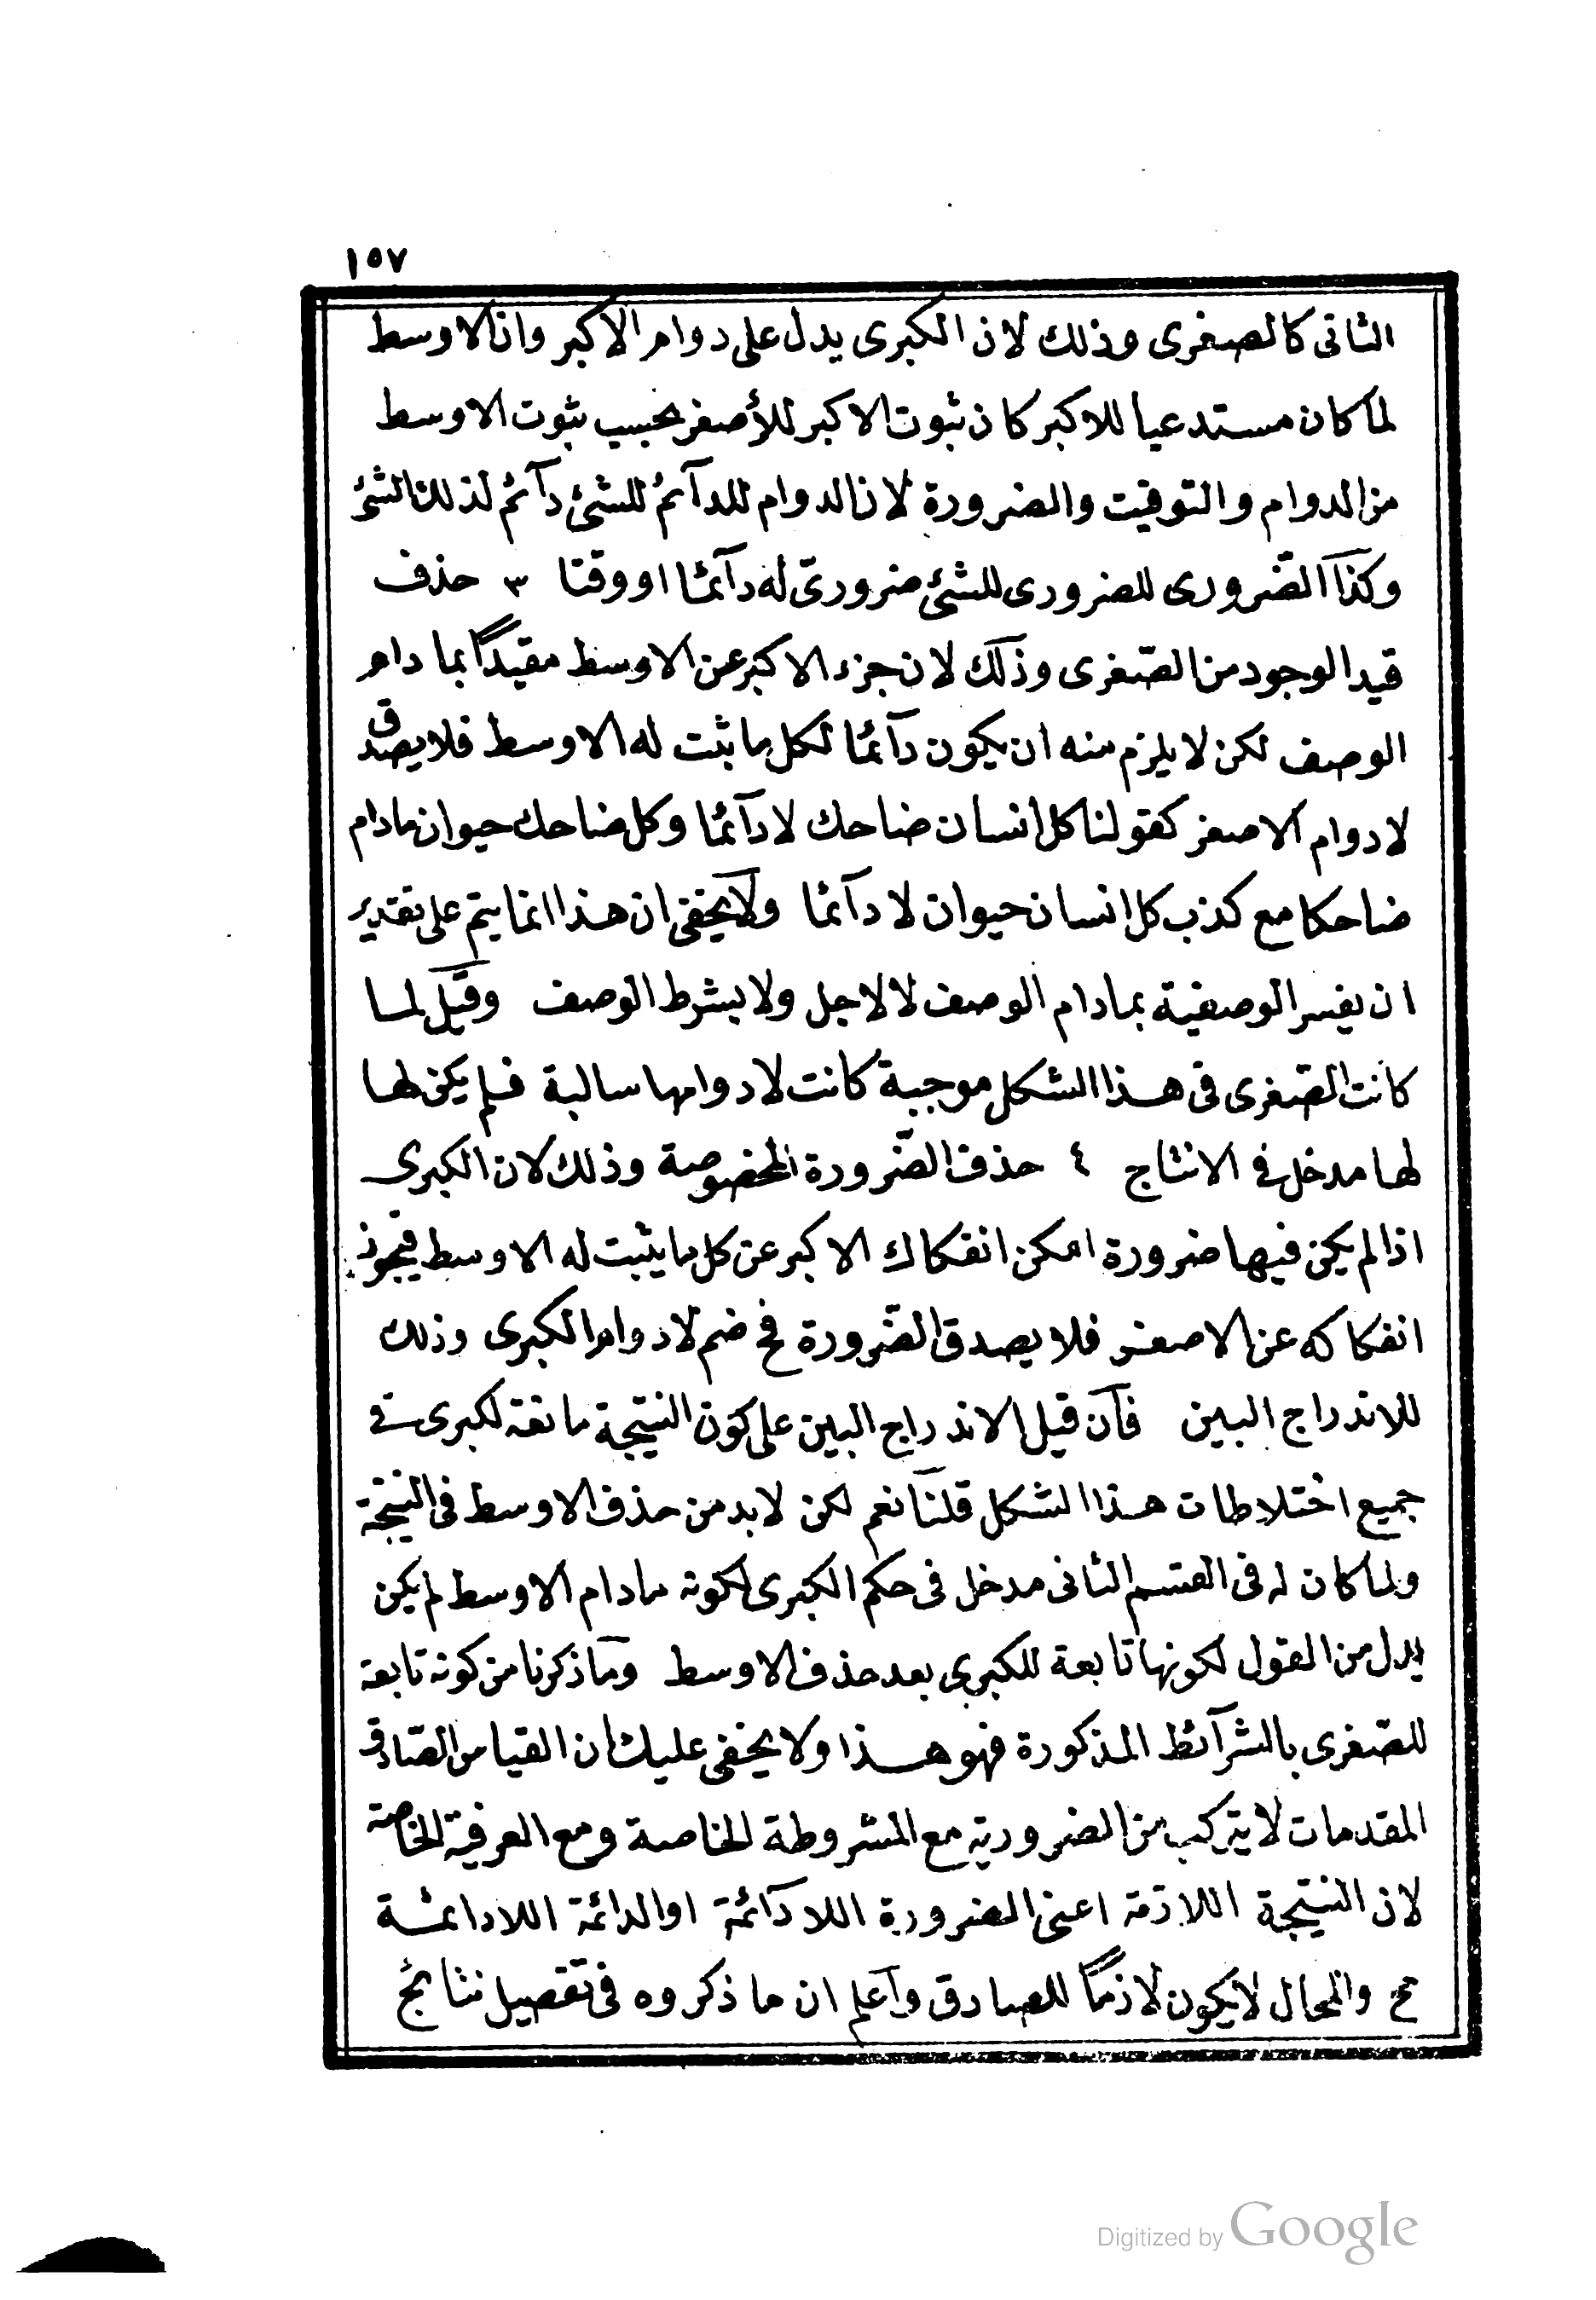 ١٥٧
الثانى كالصغرى وذلك لان الكبرى يدل على دوام الاكبر وان الاوسط
لما كان مستدعيا للاكبر كان ثبوت الاكبر للأصغر بحسب ثبوت الاوسط
من الدوام والتوقيت والضرورة لان الدوام للدآئم للشئ دآئم لذلك الشئ
وكذا الضّرورى للضرورى للشئ ضرورىّ له دآئما او وقتا ٣ حذف
قيد الوجود من الصّغرى وذلك لان جزء الاكبر عن الاوسط مقيداً بما دام
الوصف لكن لا يلزم منه ان يكون دآئما لكل ما ثبت له الاوسط فلا يصدق
لا دوام الاصغر كقولنا كل انسان ضاحك لا دآئما وكل ضاحك حيوان مادام
ضاحكا مع كذب كل انسان حيوان لا دآئما ولا يخفى ان هذا انما يتم على تقدير
ان يفسر الوصفية بمادام الوصف لا لاجل ولا بشرط الوصف وقيل لما
كانت الصّغرى فى هذا الشكل موجبة كانت لا دوامها سالبة فلم يكن لها
لها مدخل فى الانتاج ٤ حذف الضّرورة المخصوصة وذلك لان الكبرى
اذا لم يكن فيها ضرورة امكن انفكاك الاكبر عن كل ما يثبت له الاوسط فيجوز
انفكاكه عن الاصغر فلا يصدق الضّرورة فح ضم لا دوام الكبرى وذلك
للاندراج البين فان قيل الاندراج البين على كون النتيجة مانعة لكبرى فى
جميع اختلاطات هذا الشكل قلنا نعم لكن لا بد من حذف الاوسط فى النتيجة
ولما كان له فى القسم الثانى مدخل فى حكم الكبرى لكونه مادام الاوسط لم يكن
يدل من القول لكونها تابعة للكبرى بعد حذف الاوسط وما ذكرنا من كونه تابعة
للصّغرى بالشرآئط المذكورة فهو هذا ولا يخفى عليك ان القياس الصّادق
المقدمات لا يتركب من الضرورية مع المشروطة الخاصة ومع العرفية الخاصة
لان النتيجة اللازمة اعنى الضرورة اللا دآئمة او الدائمة اللادائمة
مح والمحال لا يكون لازماً للصادق واعلم ان ما ذكروه فى تفصيل نتائج
Digitized by Google